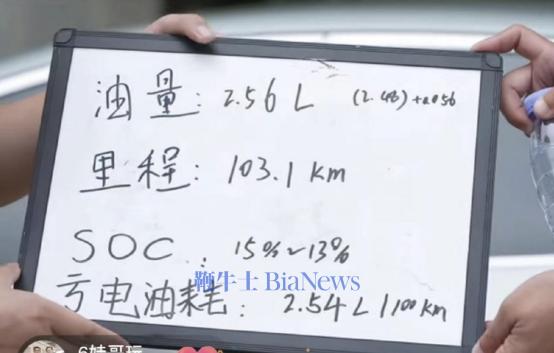 油量: 2.56 L (2.48)+0.056
里程: 103.1 km
SOC: 15%~13%
鞭牛士 BiaNews
亏电油耗: 2.54L/100km
6妹哥玩